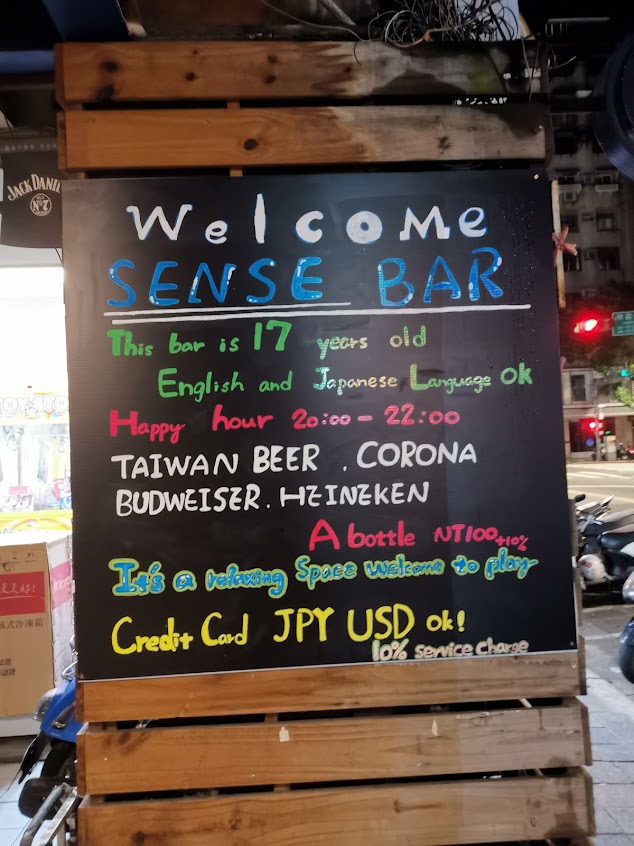 JACK DANIEL
Nº7
Welcome
SENSE BAR
This bar is 17 years old
English and Japanese Language ok
Happy hour 20:00 - 22:00
TAIWAN BEER . CORONA
BUDWEISER. HEINEKEN
A bottle NT100+10%
It's a relaxing Space welcome to play
Credit Card JPY USD ok!
10% service charge